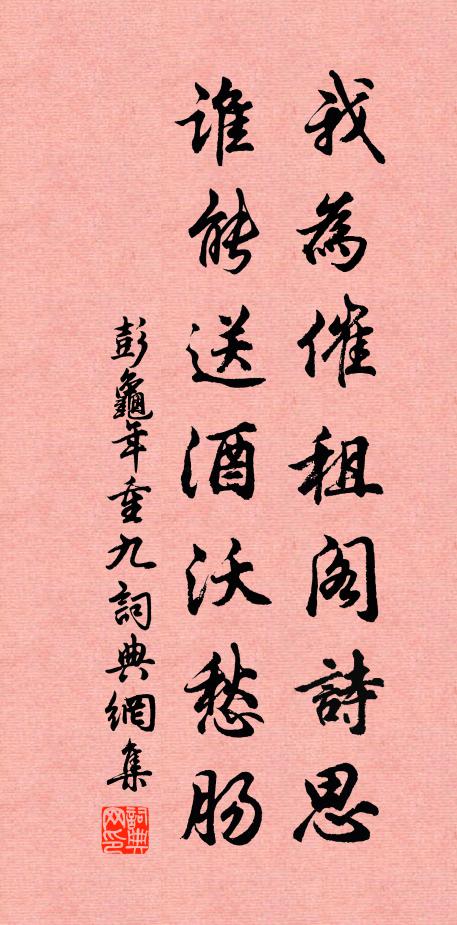 我為催租閣詩思
誰能送酒沃愁腸
彭龜年重九詞典網集
詞典网印